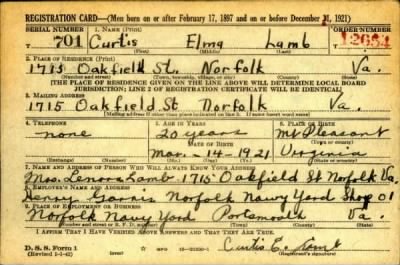 REGISTRATION CARD—(Men born on or after February 17, 1897 and on or before December 31, 1921)
SERIAL NUMBER 1. NAME (Print) ORDER NUMBER
701 Curtis Elmo Lamb 12654
(First) (Middle) (Last)
2. PLACE OF RESIDENCE (Print)
1715 Oakfield St. Norfolk Va.
(Number and street) (Town, township, village, or city) (County) (State)
[THE PLACE OF RESIDENCE GIVEN ON THE LINE ABOVE WILL DETERMINE LOCAL BOARD
JURISDICTION; LINE 2 OF REGISTRATION CERTIFICATE WILL BE IDENTICAL]
3. MAILING ADDRESS
1715 Oakfield St. Norfolk Va.
[Mailing address if other than place indicated on line 2. If same insert word same]
4. TELEPHONE 5. AGE IN YEARS 6. PLACE OF BIRTH
none 20 years Mt Pleasant
DATE OF BIRTH (Town or county)
Mar. - 14 - 1921 Virginia
(Exchange) (Number) (Mo.) (Day) (Yr.) (State or country)
7. NAME AND ADDRESS OF PERSON WHO WILL ALWAYS KNOW YOUR ADDRESS
Mrs. Lenora Lamb 1715 Oakfield St Norfolk Va.
8. EMPLOYER'S NAME AND ADDRESS
Henry Norfolk Navy Yard Shop 01
9. PLACE OF EMPLOYMENT OR BUSINESS
Norfolk Navy Yard Portsmouth Va.
(Number and street or R. F. D. number) (Town) (County) (State)
I AFFIRM THAT I HAVE VERIFIED ABOVE ANSWERS AND THAT THEY ARE TRUE.
D. S. S. Form 1
Curtis E. Lamb
(Registrant's signature)